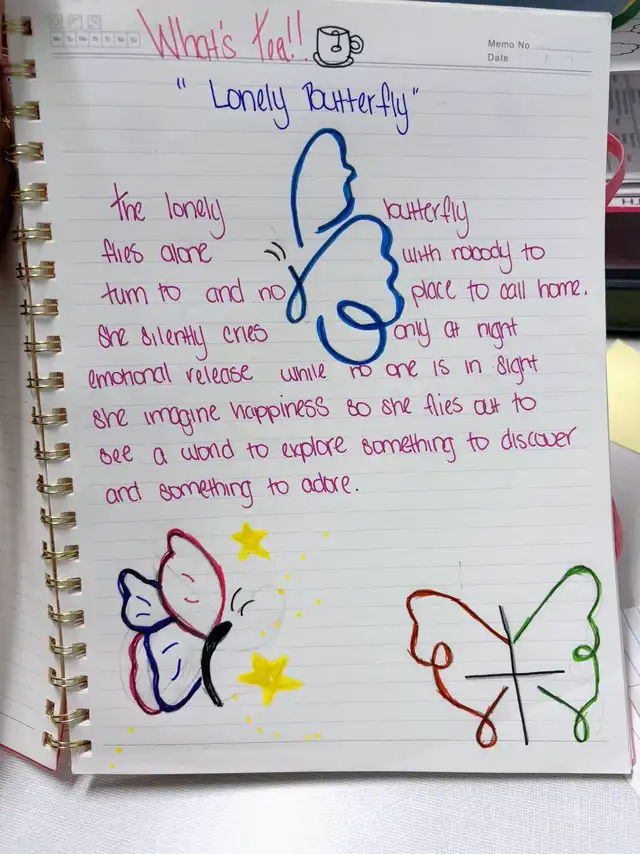 What's tea!!
Memo No.
Date
" Lonely Butterfly "
the lonely butterfly
flies alone with nobody to
turn to and no place to call home.
she silently cries only at night
emotional release while no one is in sight
she imagine happiness so she flies out to
see a world to explore something to discover
and something to adore.